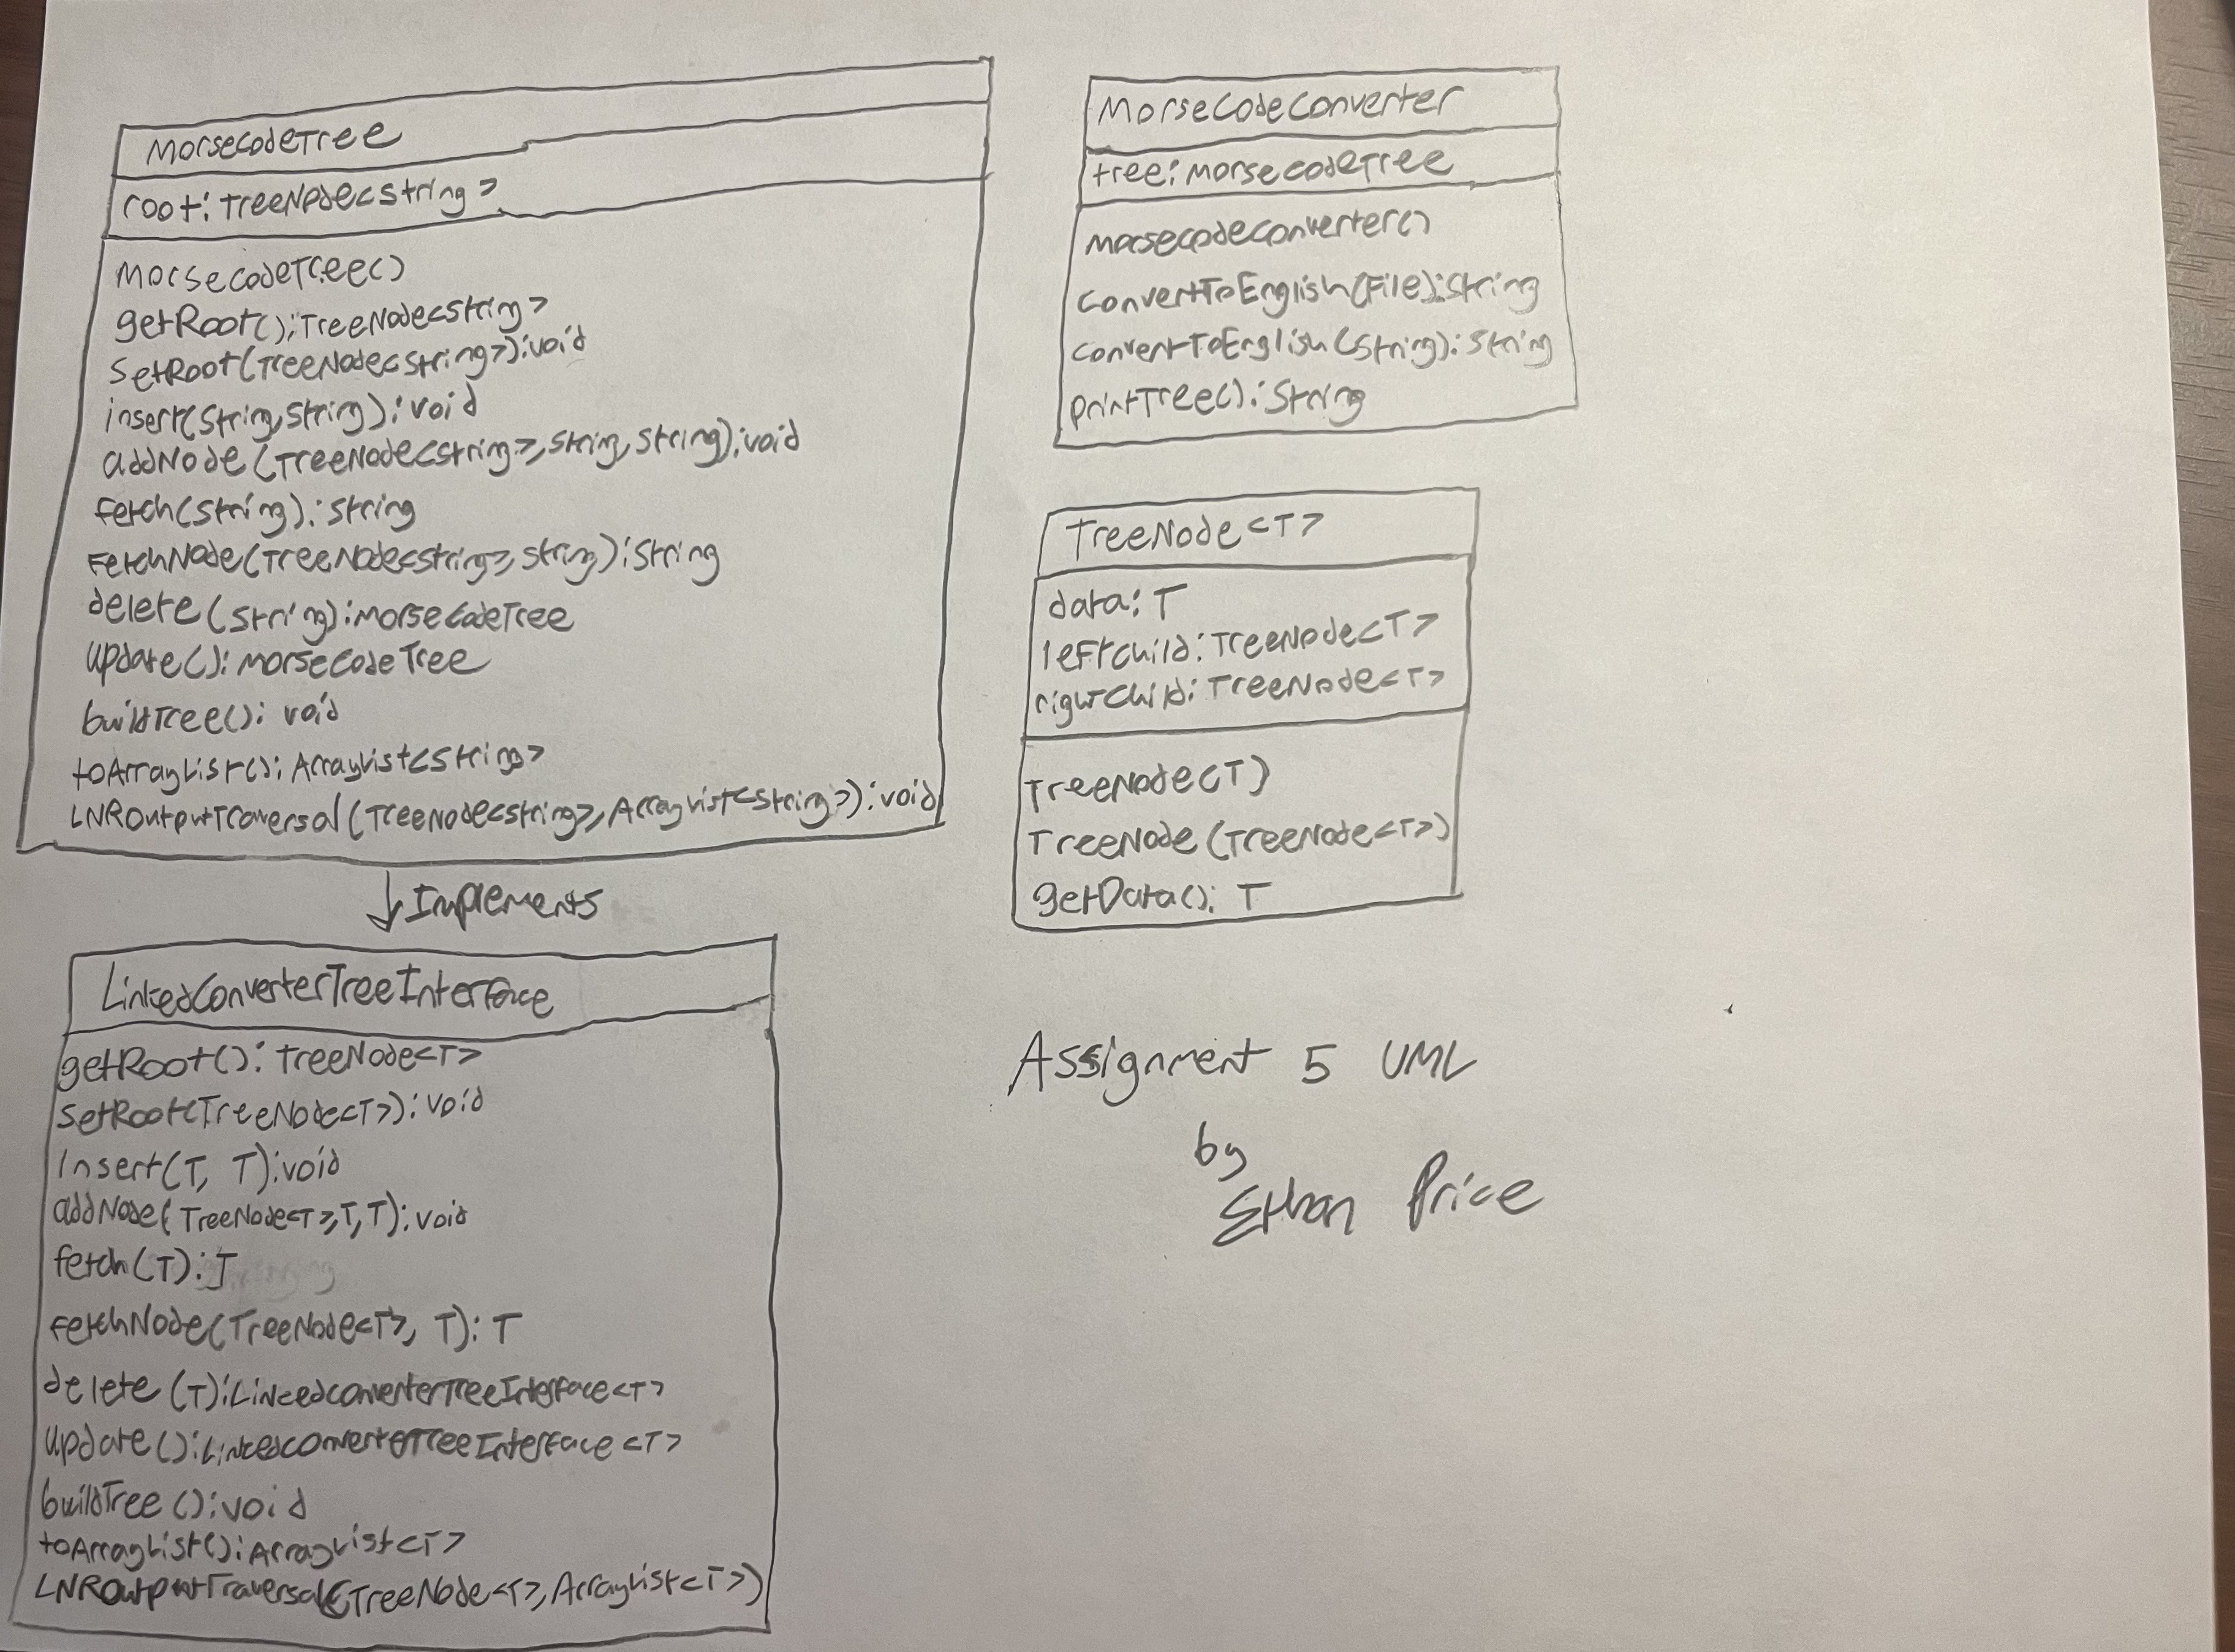 MorseCodeTree
root: TreeNode<String>
MorseCodeTree()
getRoot(): TreeNode<String>
setRoot(TreeNode<String>): void
insert(String, String): void
addNode(TreeNode<String>, String, String): void
fetch(String): String
fetchNode(TreeNode<String>, String): String
delete(String): MorseCodeTree
update(): MorseCodeTree
buildTree(): void
toArrayList(): ArrayList<String>
LNROutputTraversal(TreeNode<String>, ArrayList<String>): void
Implements
LinkedConverterTreeInterface
getRoot(): TreeNode<T>
setRoot(TreeNode<T>): void
Insert(T, T): void
addNode(TreeNode<T>, T, T): void
fetch(T): T
fetchNode(TreeNode<T>, T): T
delete(T): LinkedConverterTreeInterface<T>
update(): LinkedConverterTreeInterface<T>
buildTree(): void
toArrayList(): ArrayList<T>
LNROutputTraversal(TreeNode<T>, ArrayList<T>)
MorseCodeConverter
tree: MorseCodeTree
MorseCodeConverter()
convertToEnglish(File): String
convertToEnglish(String): String
printTree(): String
TreeNode<T>
data: T
leftChild: TreeNode<T>
rightChild: TreeNode<T>
TreeNode(T)
TreeNode(TreeNode<T>)
getData(): T
Assignment 5 UML
by
Ethan Price